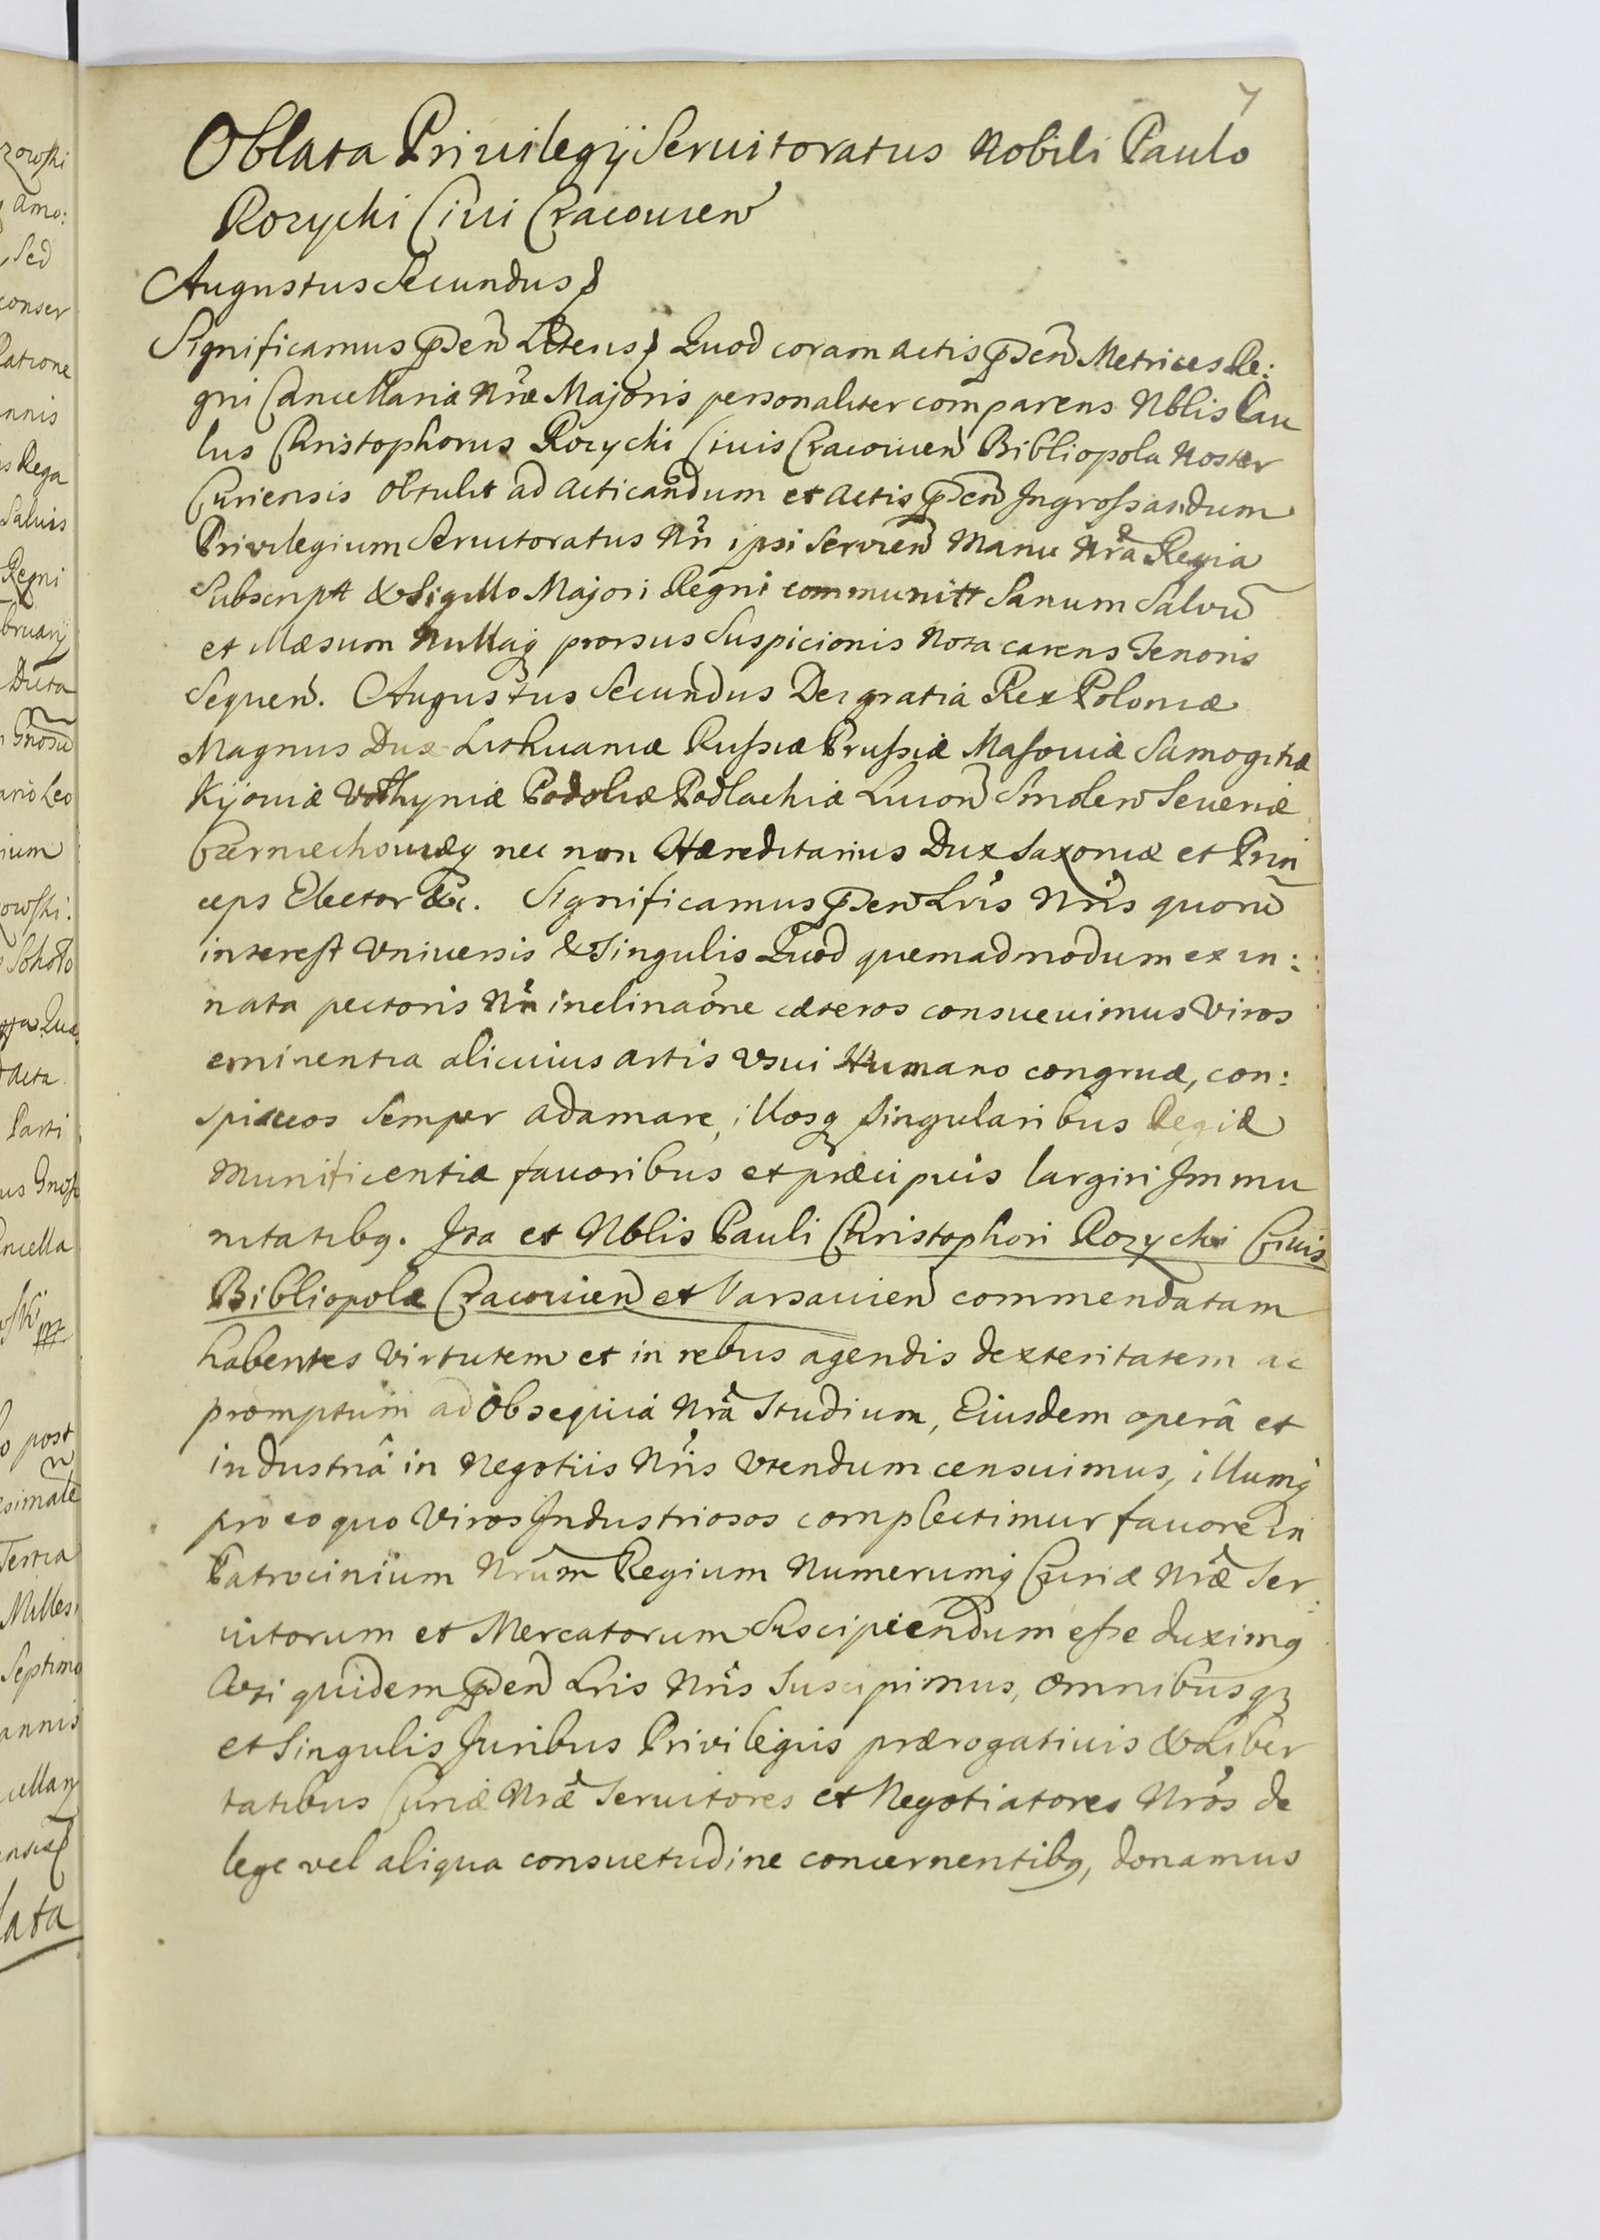 7
Oblata Priuilegij Seruitoratus Nobili Paulo
Rozycki Ciui Cracouien
Augustus Secundus
Significamus pñten Literis Quod coram Actis pñten Metrices Re:
gni Cancellariæ Nræ Majoris personaliter comparens Nblis Pau
lus Christophorus Rozycki Ciuis Cracouien Bibliopola Noster
Curiensis obtulit ad acticandum et Actis pñten Ingrossandum
Privilegium Seruitoratus Nri ipsi Servien Manu Nrâ Regia
Subscriptt & Sigillo Majori Regni communitt Sanum Salvũ
et Illæsum Nullaq prorsus Suspicionis Nota carens Tenoris
Sequen. Augustus Secundus Dei gratia Rex Poloniæ
Magnus Dux Lithuaniæ Russiæ Prussiæ Masouiæ Samogitiæ
Kijouiæ Volhyniæ Podoliæ Podlachiæ Liuon Smolen Seueriæ
Czerniechouiæq nec non Hæreditarius Dux Saxoniæ et Prin
ceps Elector &c. Significamus pñten Lris Nris quorũ
interest Vniuersis & Singulis Quod quemadmodum ex in:
nata pectoris Nri inclinaõne cæteros consueuimus Viros
eminentia alicuius artis Vsui Humano congruæ, con:
spicuos Semper adamare, illosq singularibus Regiæ
Munificentiæ fauoribus et præcipuis largiri Immu
nitatibq. Ita et Nblis Pauli Christophori Rozycki Ciuis
Bibliopolæ Cracouien et Varsauien commendatam
habentes Virtutem et in rebus agendis dexteritatem ac
promptum ad Obsequia Nrâ Studium, Eiusdem operâ et
industriâ in Negotiis Nris Vtendum censuimus, illumq
pro eo quo Viros Industriosos complectimur fauore in
Patrocinium Nrum Regium Numerumq Curiæ Nræ Ser
uitorum et Mercatorum Suscipiendum esse duximq
Vti quidem pñten Lris Nris Suscipimus, Omnibusqz
et Singulis Juribus Privilegiis prærogatiuis & Liber
tatibus Curiæ Nræ Seruitores et Negotiatores Nros de
lege vel aliqua consuetudine concernentibq, donamus